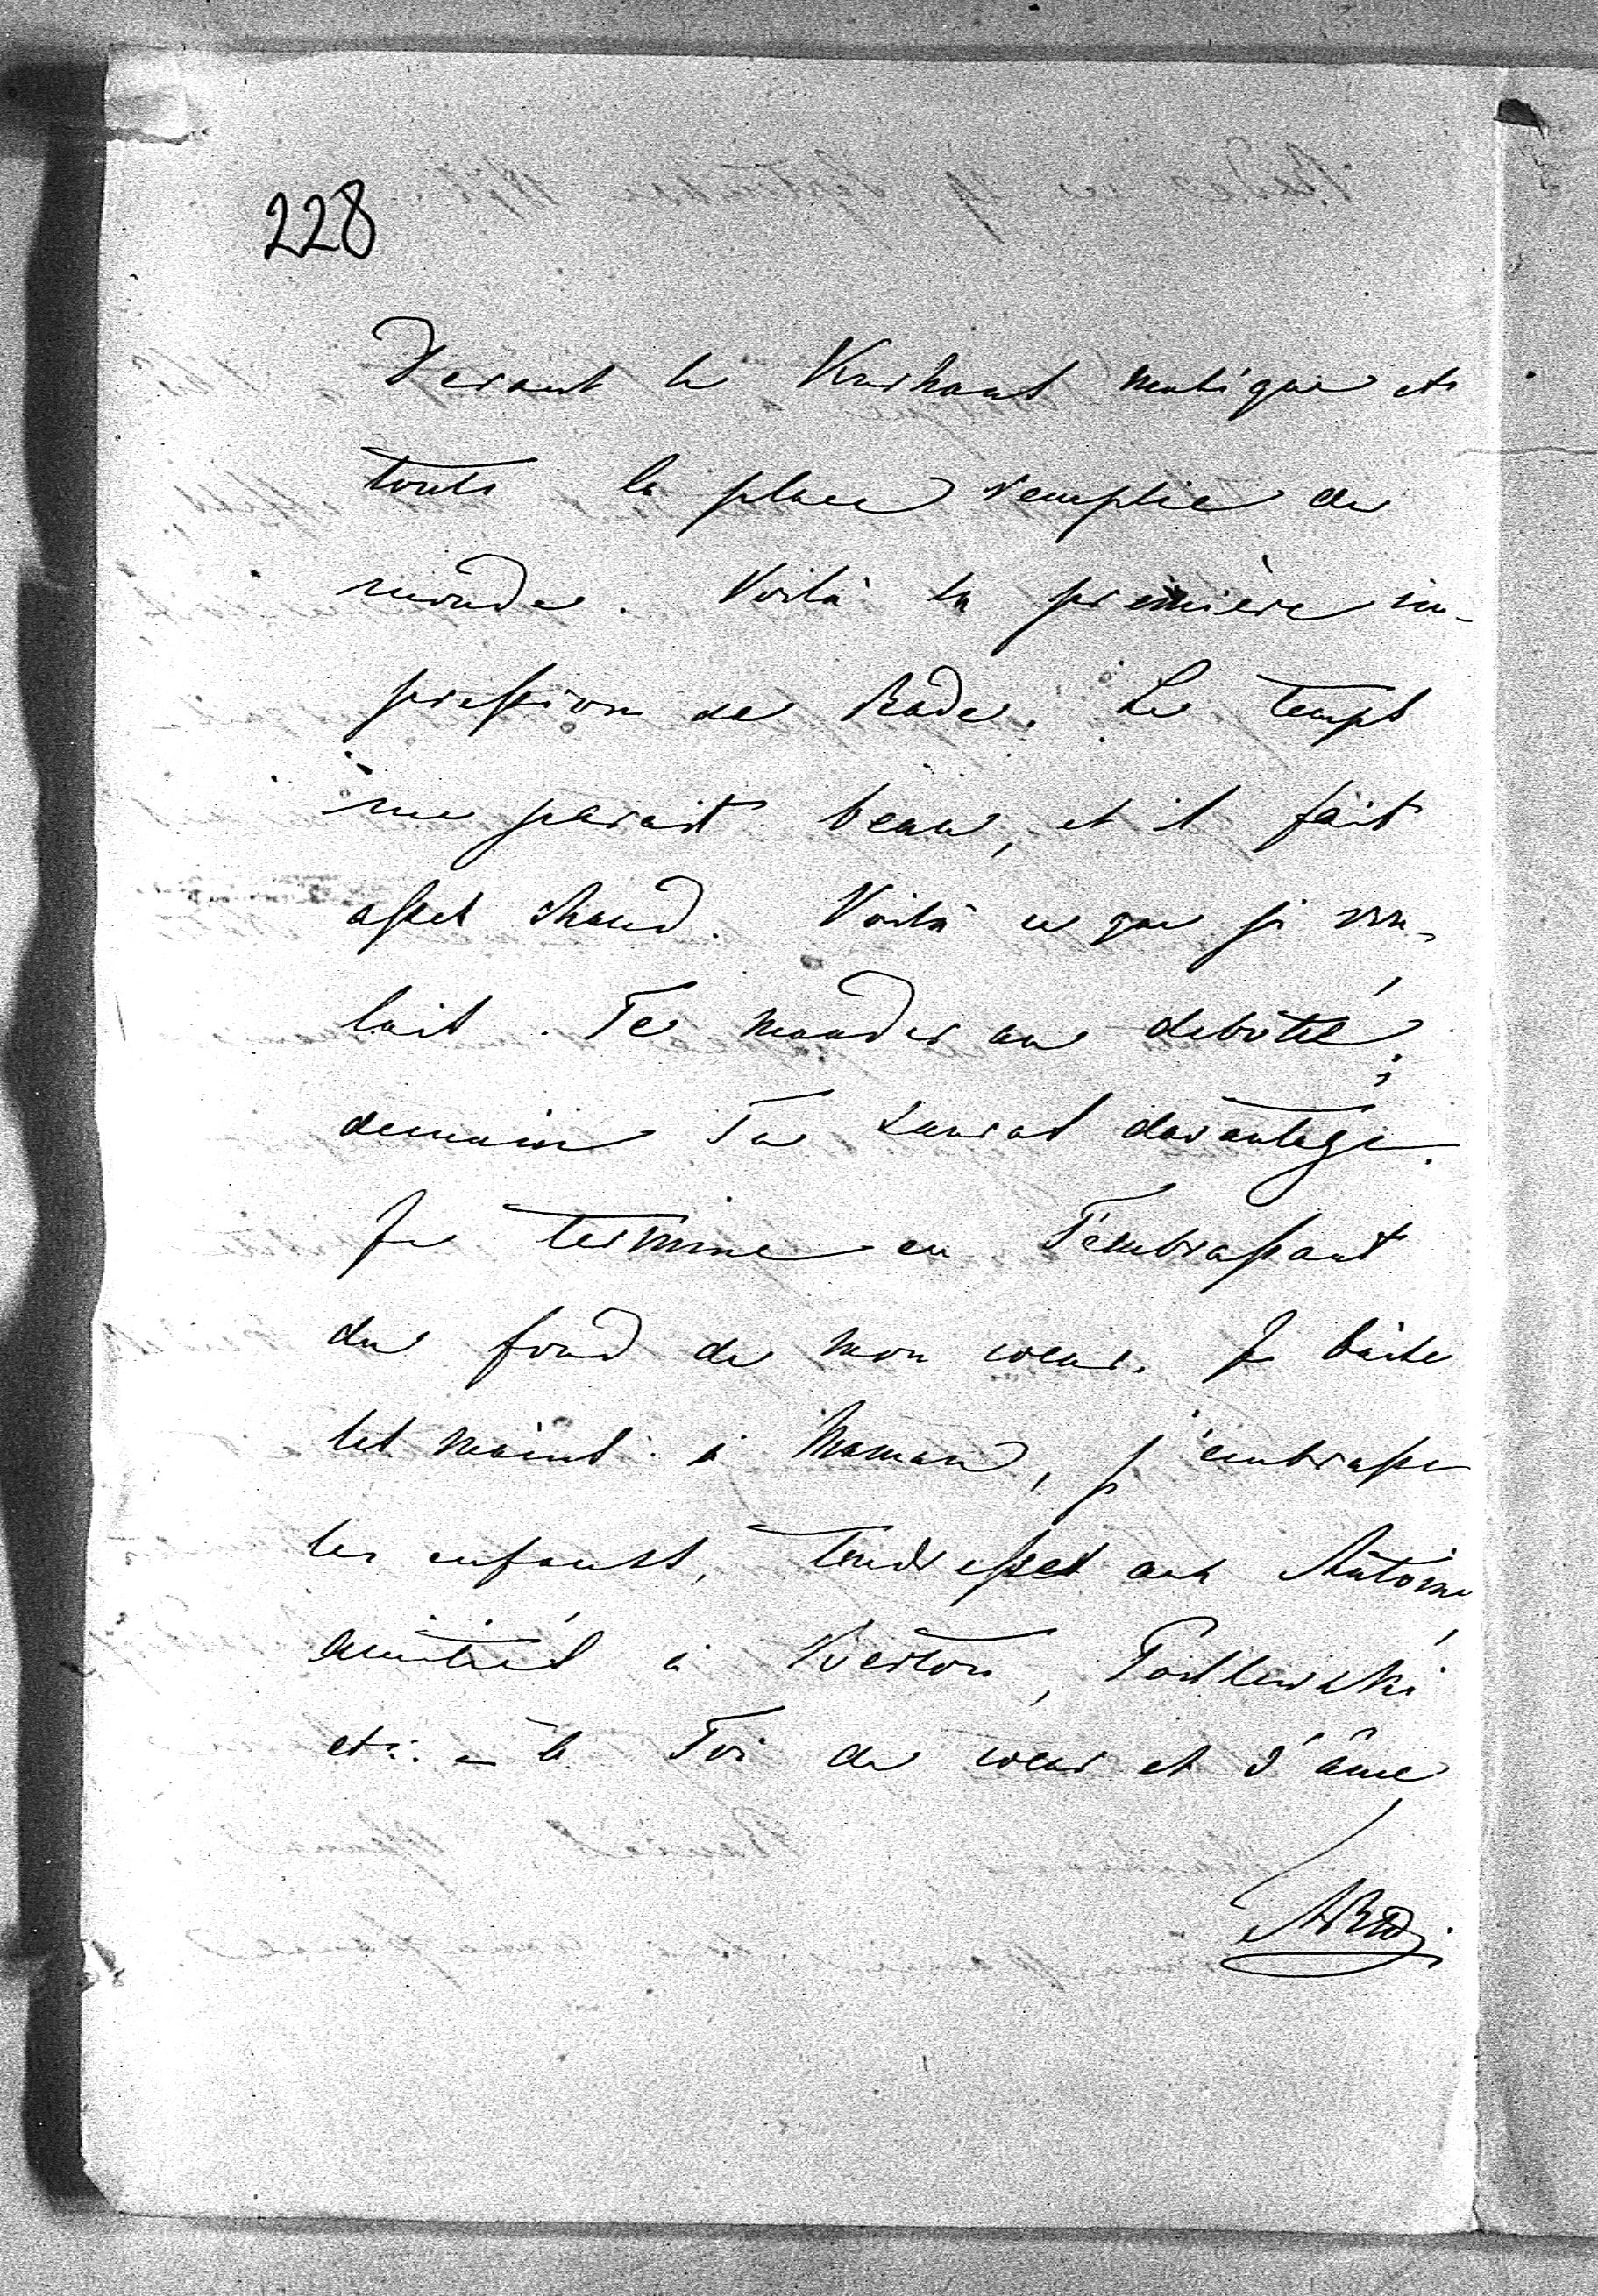 228
Devant le Kurhaus musique et
toute la place remplie de
monde. Voilà la première im-
pression de Bade. Le temps
me parait beau, et il fait
assez chaud. Voilà ce que je vou-
lais Te mander au debotté,
demain Tu sauras davantage.
Je termine en T'embrassant
du fond de mon coeur. Je baise
les mains à Maman, j'embrasse
les enfants, tendresses aux Antoine,
amitiés à
etc: – à Toi de coeur et d'âme